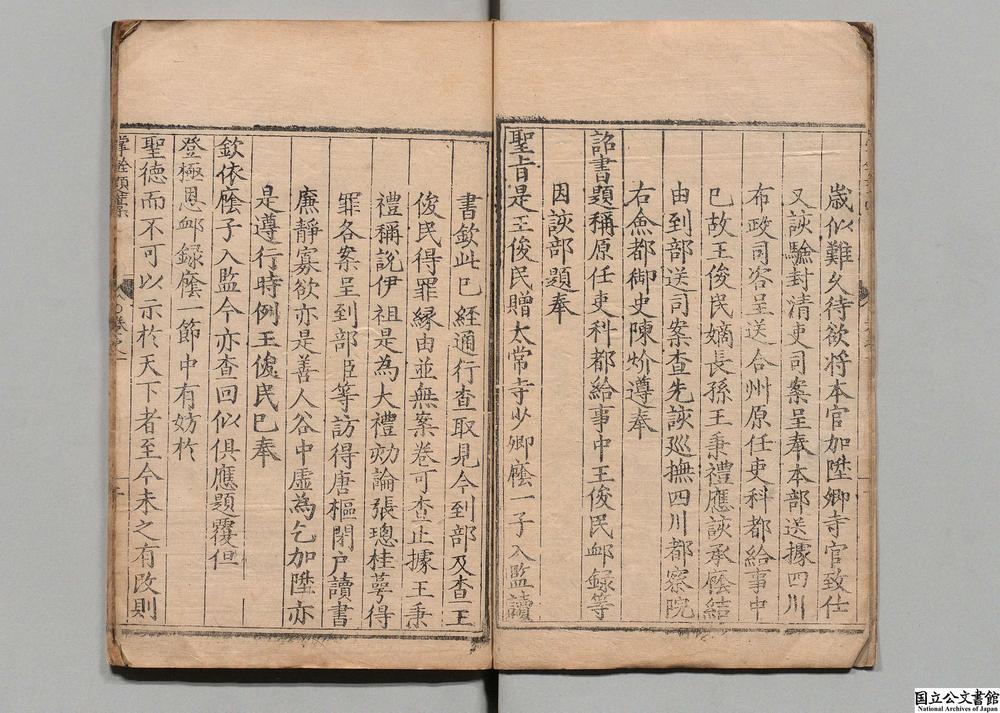 歲似難乆待欲将本官加陞卿寺官致仕
又該驗封清吏司案呈奉本部送據四川
布政司咨呈送合州原任吏科都給事中
已故王俊民嫡長孫王秉禮應該承廕結
由到部送司案查先該廵撫四川都察院
右僉都御史陳炌遵奉
詔書題稱原任吏科都給事中王俊民邺録等
因該部題奉
聖旨是王俊民贈太常寺少卿廕一子入監讀
書欽此已經通行查取見今到部及查王
俊民得罪縁由並無案卷可查止據王秉
禮稱說伊祖是為大禮劾論張璁桂萼得
罪各案呈到部臣等訪得唐樞閉户讀書
廉静寡欲亦是善人谷中虚為乞加陞亦
是遵行時例王俊民已奉
欽依廕子入監今亦查回似俱應題覆但
登極恩邺録廕一節中有妨於
聖德而不可以示於天下者至今未之有改則
掌銓題藁
国立公文書館
National Archives of Japan